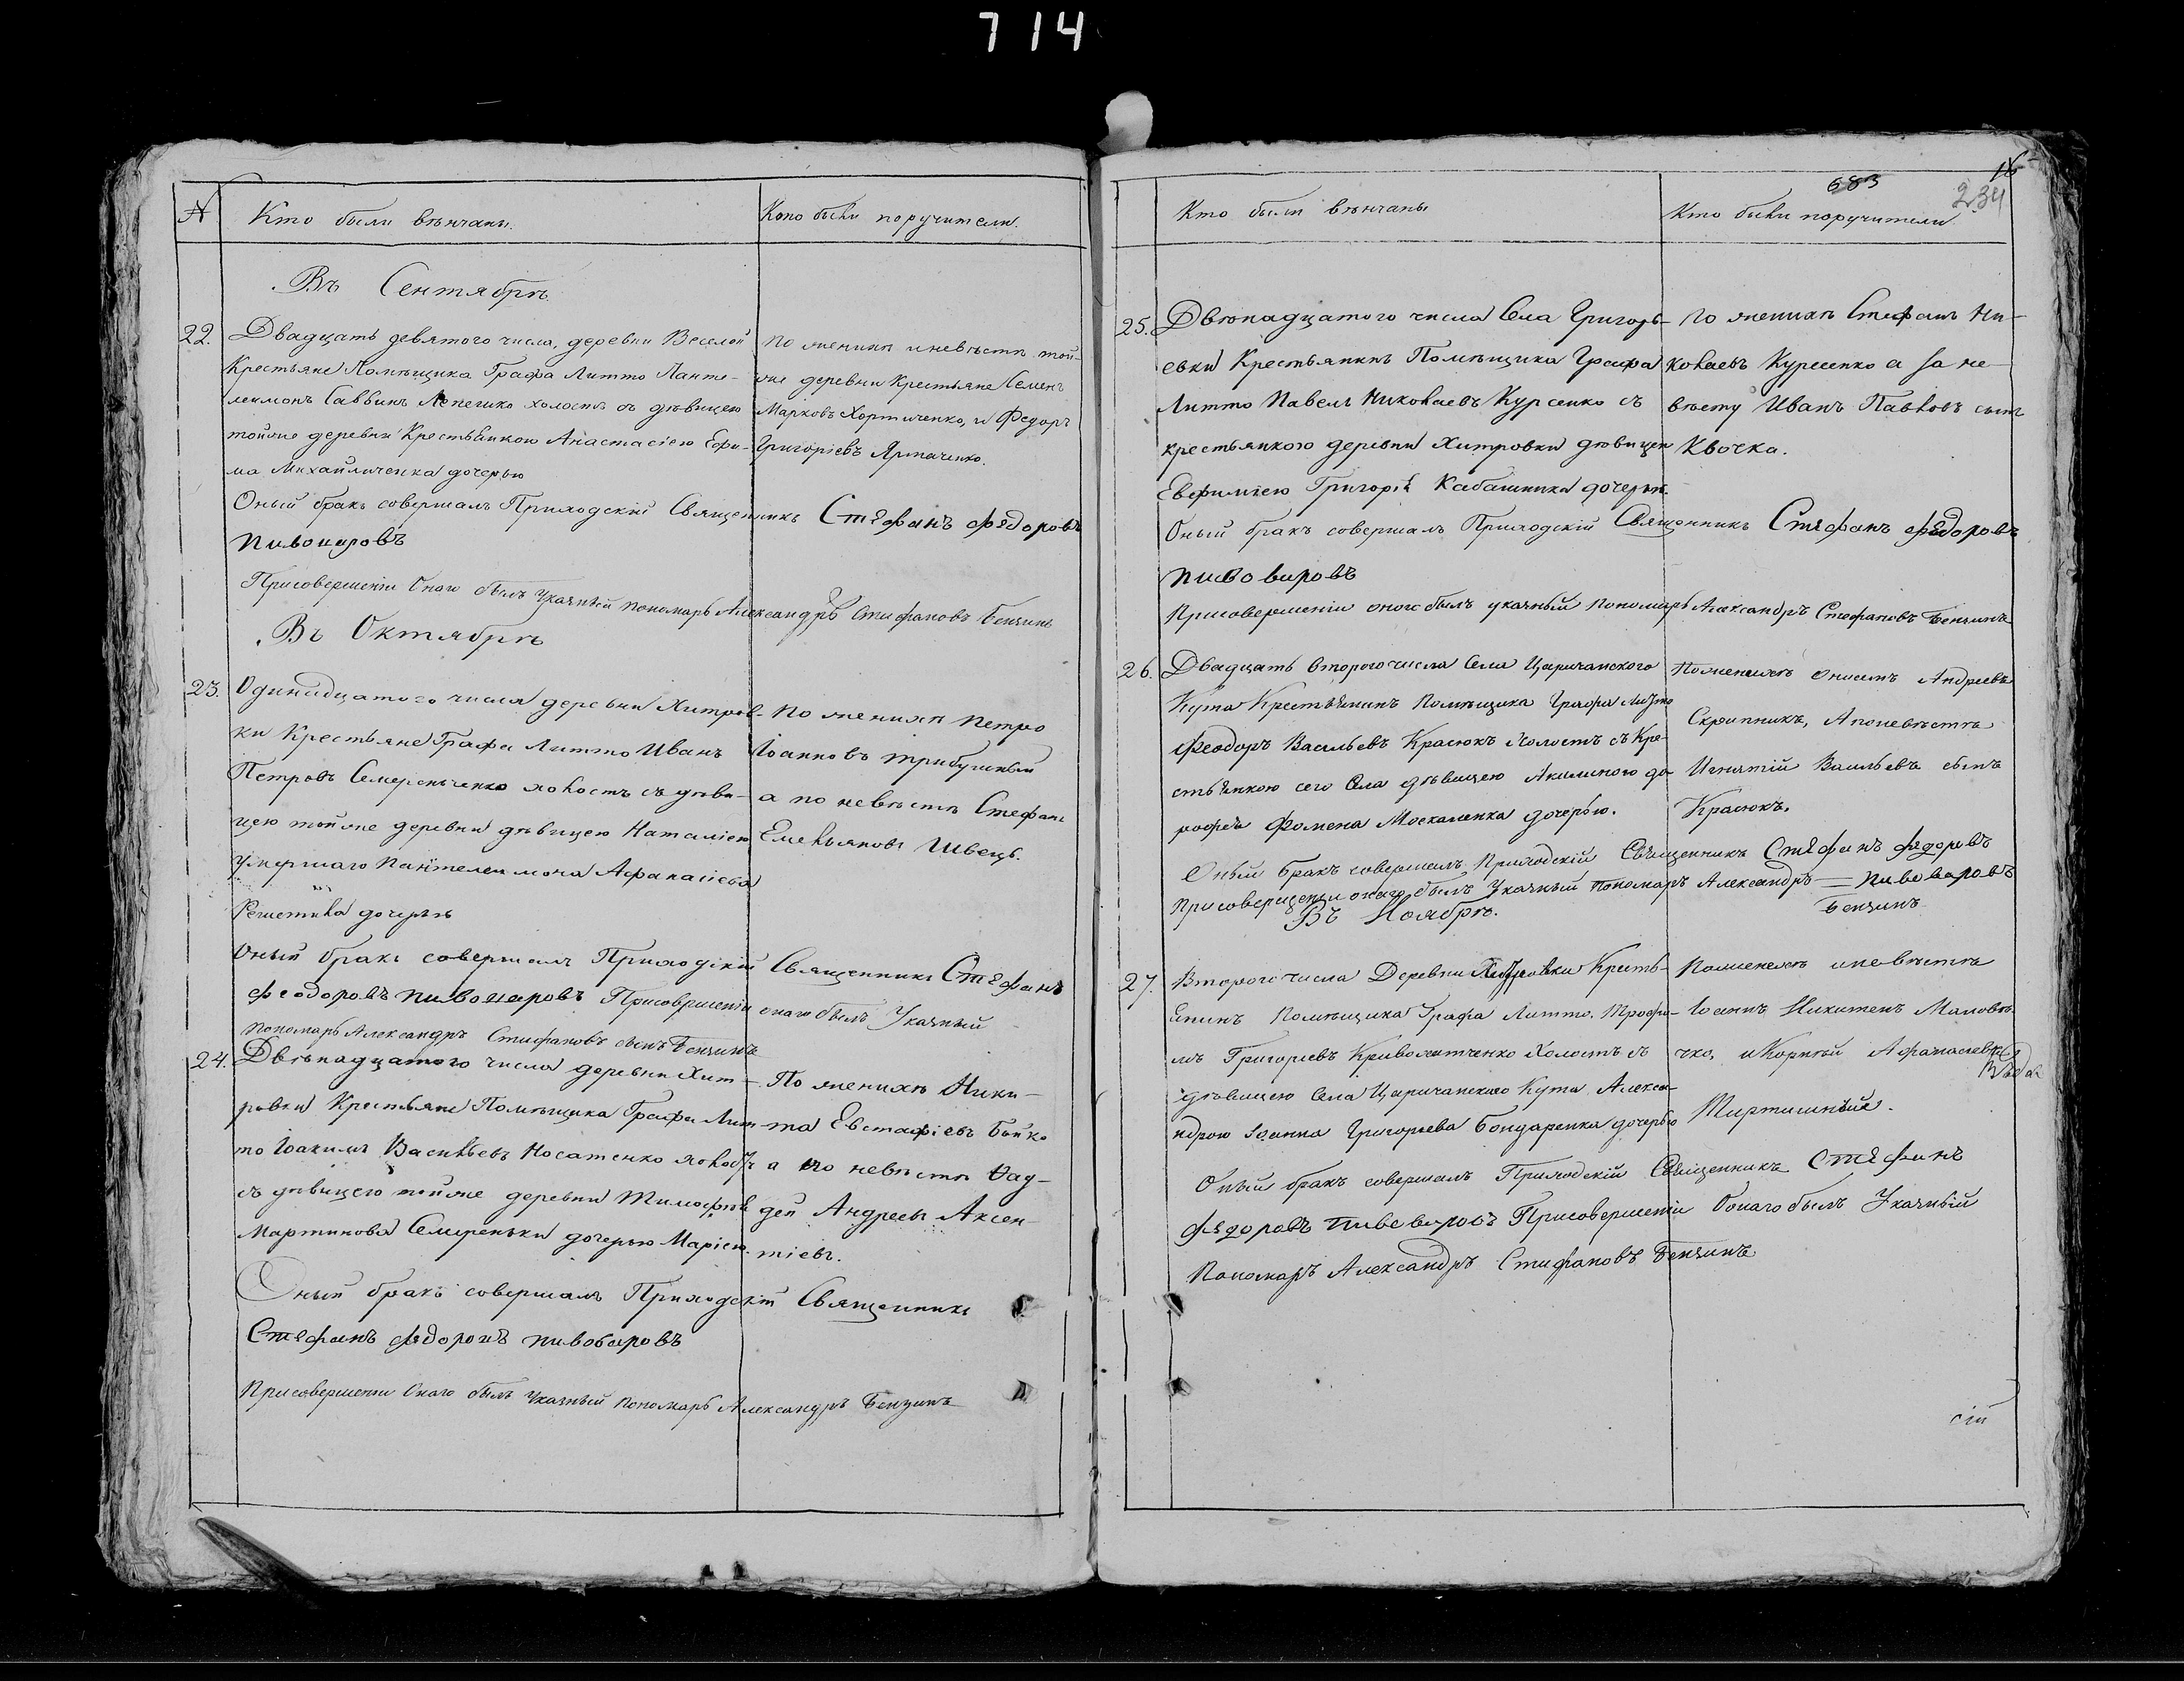 714
№ Кто были вѣнчаны. Кто были поручители.
Въ Сентябрѣ
22. Двадцать девятого числа, деревни Веселой
Крестьяне Помѣщика Графа Литто Панте-
леимонъ Саввинъ холостъ съ дѣвицею
тойже деревни Крестьянкою Анастасіею Ефи-
ма Михайличенка дочерью
По жениxѣ и невѣстѣ той-
же деревни Крестьяне Семенъ
Марковъ Хортиченко, и Федоръ
Григоріевъ Ярмаченко.
Оный бракъ совершалъ Приходскій Священникъ Стефанъ Федоровъ
Пивоваровъ
Присовершеніи Онаго былъ Указный пономарь Александръ Стефановъ Бензинъ
Въ Октябрѣ
23. Одинадцатого числа деревни Хитров-
ки Крестьяне Графа Литто Иванъ
Петровъ Семеренченко холостъ съ дѣви-
цею тойже деревни дѣвицею Наталіею
умершаго Пантелеимона Афанасіева
дочерью
По женихѣ Петро
Іоанновъ Трибушный
а по невѣстѣ Стефанъ
Емельяновъ Швець.
Оный бракъ совершалъ Приходскій Священникъ Стефанъ
Феодоровъ Пивоваровъ Присовершеніи онаго былъ Указный
пономарь Александръ Стефановъ сынъ Бензинъ
24. Двѣнадцатого числа деревни Хит-
ровки Крестьяне Помѣщика Графа Лит-
то Іоакимъ Васильевъ Носатенко холостъ
съ дѣвицею тойже деревни Тимофѣя
Мартинова Семереньки дочерью Маріею.
По женихѣ Ники-
та Евстафіевъ Бойко
а по невѣстѣ Фад-
дей Андреевъ Аксен-
тіевъ.
Оный бракъ совершалъ Приходскій Священникъ
Стефанъ Федоровъ Пивоваровъ
Присовершеніи Онаго былъ Указный пономарь Александръ Бензинъ
683
16
234
Кто были вѣнчаны Кто были поручители
25. Двѣнадцатого числа Села Григорь-
евки Крестьянинъ Помѣщика Графа
Литто Павелъ Николаевъ Курсенко съ
крестьянкою деревни Хитровки дѣвицею
Евфиміею Григорія Кабашника дочерью.
По женихѣ Стефанъ Ни-
колаевъ Курсенко а за не-
вѣсту Иванъ Павловъ сынъ
Квочка.
Оный бракъ совершалъ Приходскій Священникъ Стефанъ Федоровъ
Пивоваровъ
Присовершеніи оного былъ указный пономарь Александръ Стефановъ Бензинъ
26. Двадцать второго числа Села Царичанского
Кута Крестьянинъ Помѣщика Графа Литто
Феодоръ Васильевъ Красюкъ Холостъ съ Кре-
стьянкою сего Села дѣвицею Акилиною до-
рофея Фомена Москаленка дочерью.
По женихѣ Онисимъ Андреевъ
Скрипникъ, А по невѣстѣ
Игнатій Васильевъ сынъ
Красюкъ.
Оный бракъ совершалъ Приходскій Священникъ Стефанъ Федоровъ
Пивоваровъ
Присовершеніи онаго былъ Указный Пономарь Александръ Бензинъ
Въ Ноябрѣ.
27. Второго числа Деревни Хитровки Кресть-
янинъ Помѣщика Графа Литто, Трофи-
мъ Григорьевъ Холостъ съ
дѣвицею Села Царичанского Кута Алекса-
ндрою Іоанна Григорьева Бондаренка дочерью
По женихѣ и невѣстѣ
Іоаннъ Никитенъ Маловѣ-
чко, и Корнѣй Афанасіевъ
Тиртишный.
Оный бракъ совершалъ Приходскій Священникъ Стефанъ
Федоровъ Пивоваровъ Присовершеніи Оонаго былъ Указный
Пономарь Александръ Стефановъ Бензинъ
сіи